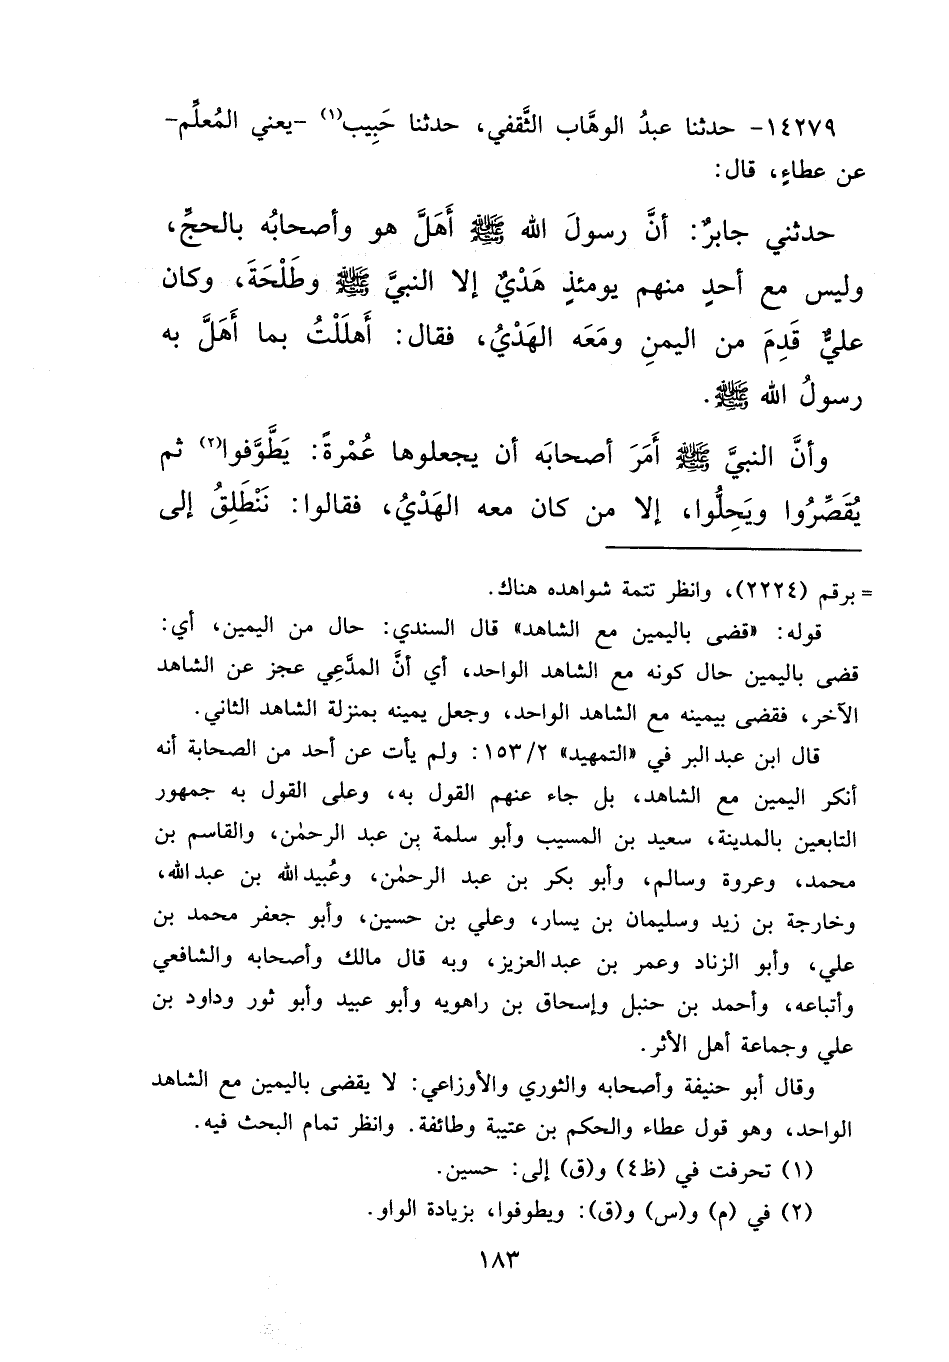 ١٤٢٧٩- حدثنا عبدُ الوهَّاب الثَّقفي، حدثنا حَبِيب(١) -يعني المُعلِّم-
عن عطاءٍ، قال:
حدثني جابرٌ: أنَّ رسولَ الله ﷺ أَهَلَّ هو وأصحابُه بالحجِّ،
وليس مع أحدٍ منهم يومئذٍ هَدْيٌ إلا النبيَّ ﷺ وطَلْحَةَ، وكان
عليٌّ قَدِمَ من اليمنِ ومَعَه الهَدْيُ، فقال: أَهلَلْتُ بما أَهَلَّ به
رسولُ الله ﷺ.
وأنَّ النبيَّ ﷺ أَمَرَ أصحابَه أن يجعلوها عُمْرةً: يَطَّوَّفوا(٢) ثم
يُقَصِّرُوا ويَحِلُّوا، إلا من كان معه الهَدْيُ، فقالوا: نَنْطَلِقُ إلى
= برقم (٢٢٢٤)، وانظر تتمة شواهده هناك.
قوله: «قضى باليمين مع الشاهد» قال السندي: حال من اليمين، أي:
قضى باليمين حال كونه مع الشاهد الواحد، أي أنَّ المدَّعِي عجز عن الشاهد
الآخر، فقضى بيمينه مع الشاهد الواحد، وجعل يمينه بمنزلة الشاهد الثاني.
قال ابن عبد البر في «التمهيد» ١٥٣/٢: ولم يأت عن أحد من الصحابة أنه
أنكر اليمين مع الشاهد، بل جاء عنهم القول به، وعلى القول به جمهور
التابعين بالمدينة، سعيد بن المسيب وأبو سلمة بن عبد الرحمٰن، والقاسم بن
محمد، وعروة وسالم، وأبو بكر بن عبد الرحمٰن، وعُبيد الله بن عبد الله،
وخارجة بن زيد وسليمان بن يسار، وعلي بن حسين، وأبو جعفر محمد بن
علي، وأبو الزناد وعمر بن عبد العزيز، وبه قال مالك وأصحابه والشافعي
وأتباعه، وأحمد بن حنبل وإسحاق بن راهويه وأبو عبيد وأبو ثور وداود بن
علي وجماعة أهل الأثر.
وقال أبو حنيفة وأصحابه والثوري والأوزاعي: لا يقضى باليمين مع الشاهد
الواحد، وهو قول عطاء والحكم بن عتيبة وطائفة. وانظر تمام البحث فيه.
(١) تحرفت في (ظ٤) و(ق) إلى: حسين.
(٢) في (م) و(س) و(ق): ويطوفوا، بزيادة الواو.
١٨٣